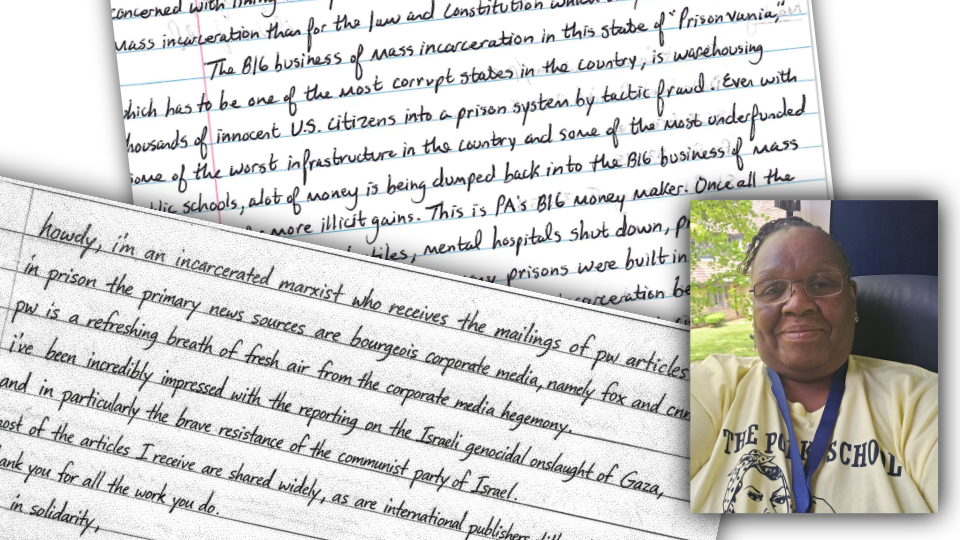 concerned with
mass incarceration than for the law and constitution which
The BIG business of mass incarceration in this state of "Prisonvania,"
which has to be one of the most corrupt states in the country, is warehousing
thousands of innocent U.S. citizens into a prison system by tactic fraud. Ever with
some of the worst infrastructure in the country and some of the most underfunded
schools, alot of money is being dumped back into the BIG business of mass
more illicit gains. This is PA's BIG money maker. Once all the
mental hospitals shut down,
prisons were built in
howdy, i'm an incarcerated marxist who receives the mailings of pw articles
in prison the primary news sources are bourgeois corporate media, namely fox and cnn
pw is a refreshing breath of fresh air from the corporate media hegemony.
i've been incredibly impressed with the reporting on the Israeli genocidal onslaught of Gaza,
and in particularly the brave resistance of the communist party of Israel.
most of the articles I receive are shared widely, as are international publishers
thank you for all the work you do.
in solidarity,
THE POLK SCHOOL